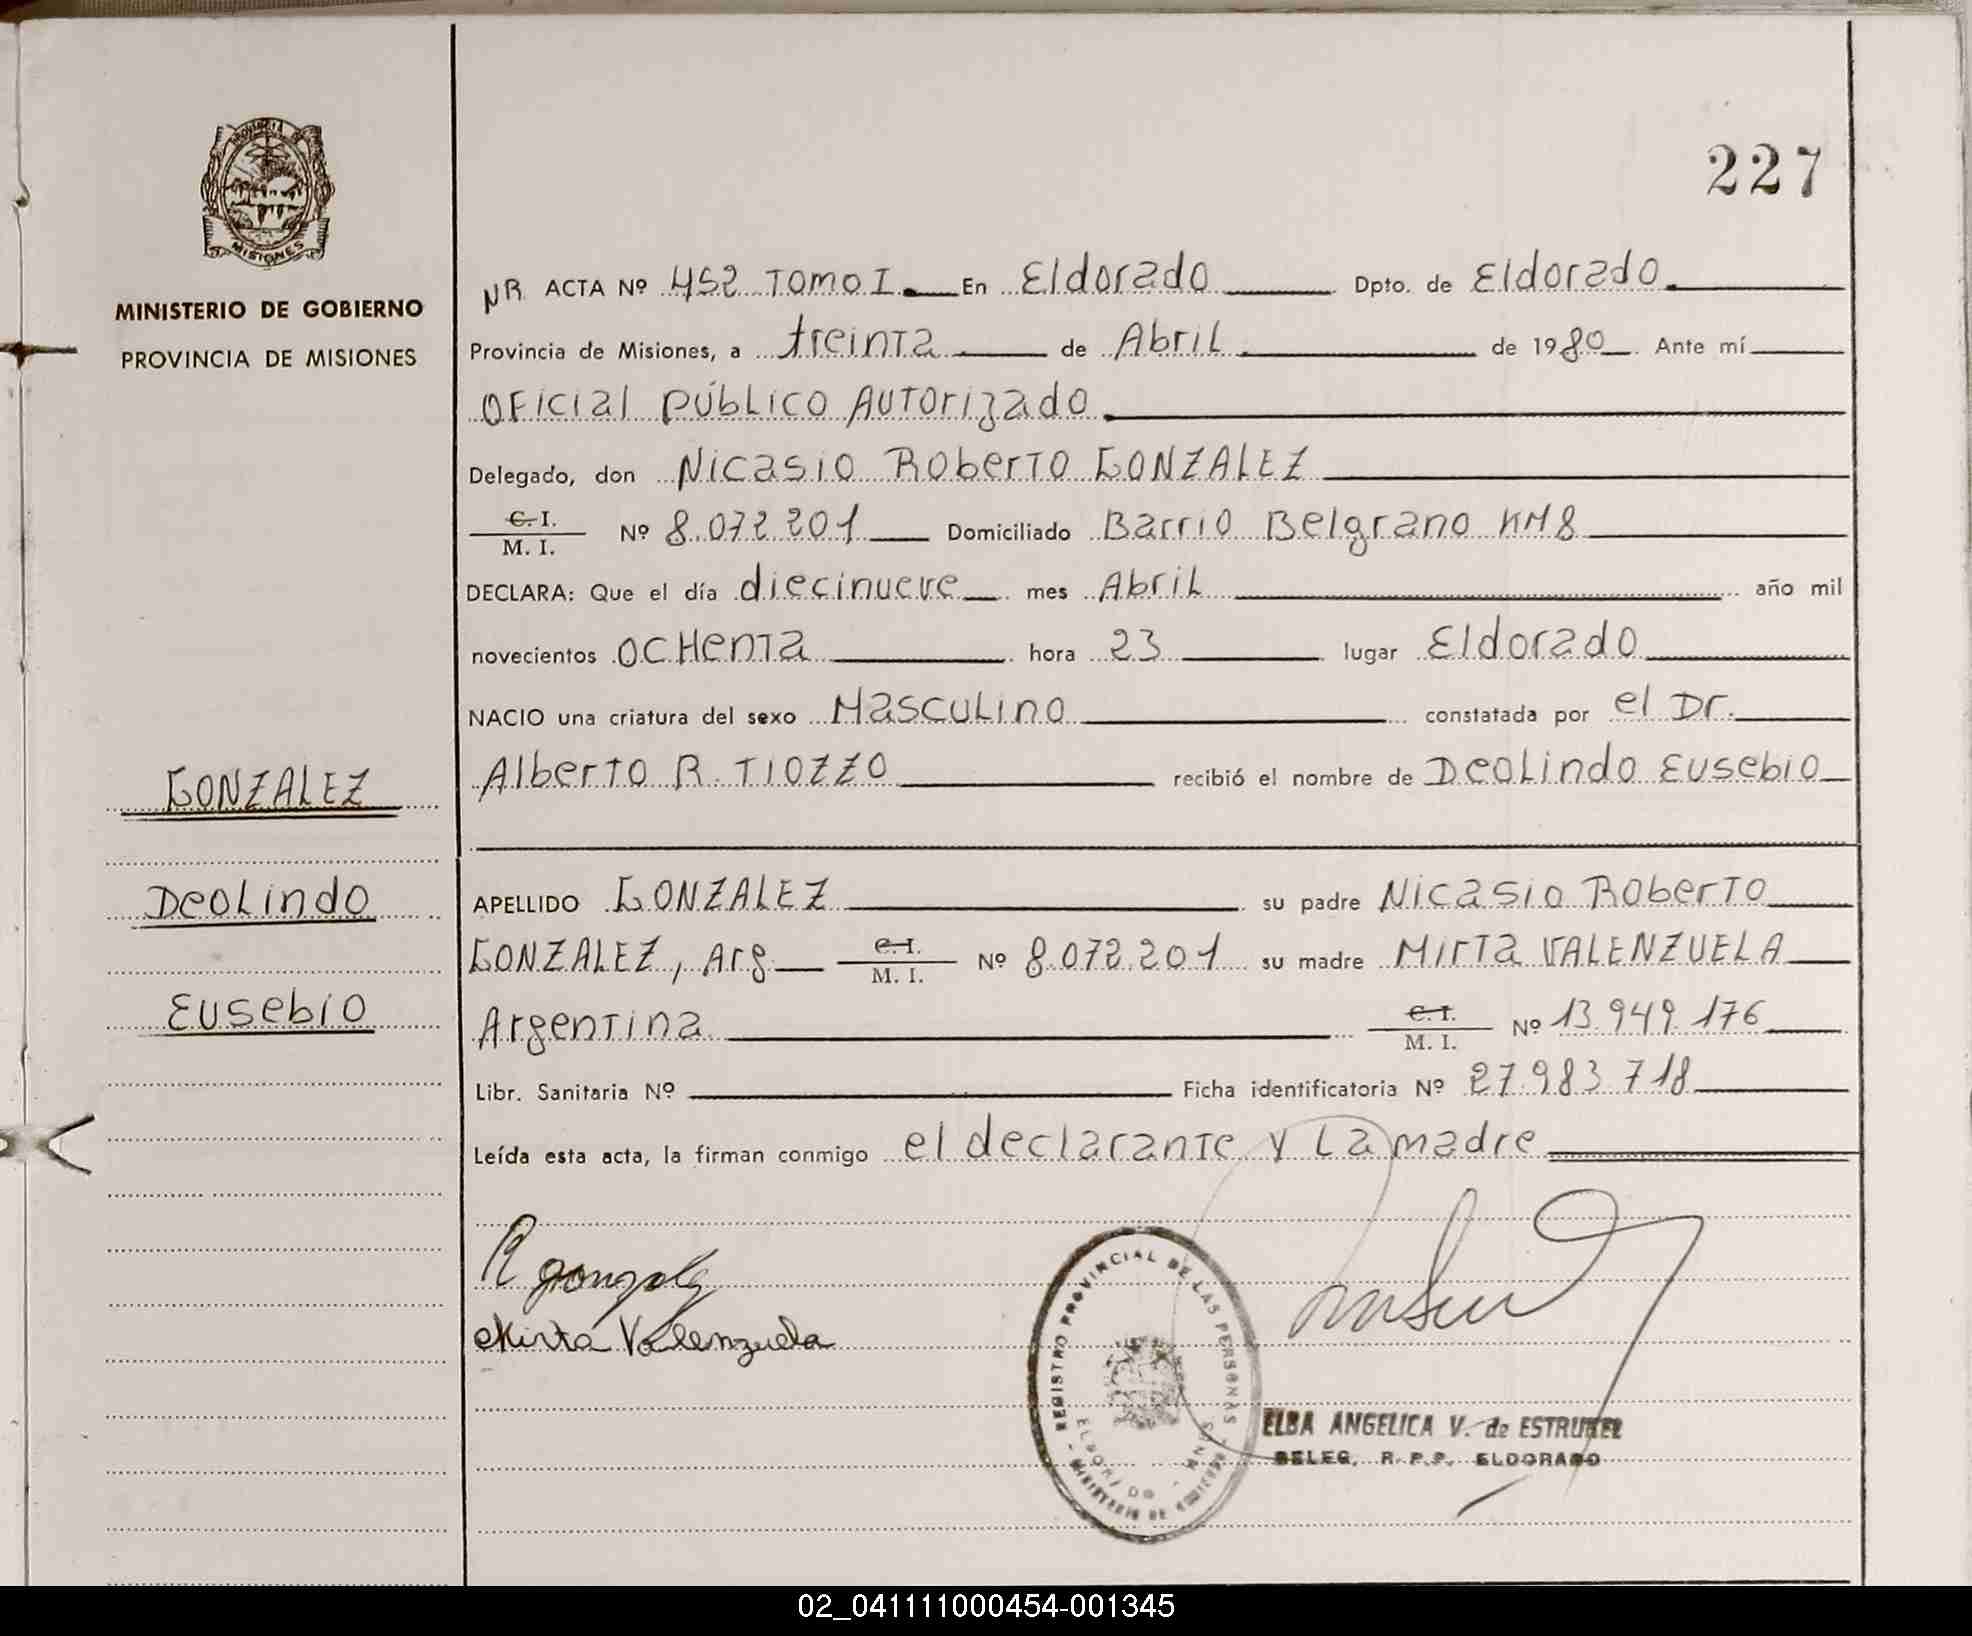 227
PROVINCIA DE
MISIONES
MINISTERIO DE GOBIERNO
PROVINCIA DE MISIONES
GONZALEZ
Deolindo
Eusebio
NR ACTA Nº 452 Tomo I. En Eldorado Dpto. de Eldorado
Provincia de Misiones, a treinta de Abril de 1980 Ante mí
Oficial Público Autorizado
Delegado, don Nicasio Roberto GONZALEZ
C. I.
M. I. Nº 8.072.201 Domiciliado Barrio Belgrano KM 8
DECLARA: Que el día diecinueve mes Abril año mil
novecientos ochenta hora 23 lugar Eldorado
NACIO una criatura del sexo Masculino constatada por el Dr.
Alberto R. TIOZZO recibió el nombre de Deolindo Eusebio
APELLIDO GONZALEZ su padre Nicasio Roberto
GONZALEZ, Arg C. I. M. I. Nº 8.072.201 su madre Mirta VALENZUELA
Argentina C. I. M. I. Nº 13.949.176
Libr. Sanitaria Nº Ficha identificatoria Nº 27.983.718
Leída esta acta, la firman conmigo el declarante y La madre
R gonzalez
Mirta Valenzuela
REGISTRO PROVINCIAL DE LAS PERSONAS
MINISTERIO DE GOBIERNO
ELDORADO
ELBA ANGELICA V. de ESTRUBEL
DELEG. R. P. P. ELDORADO
02_041111000454-001345